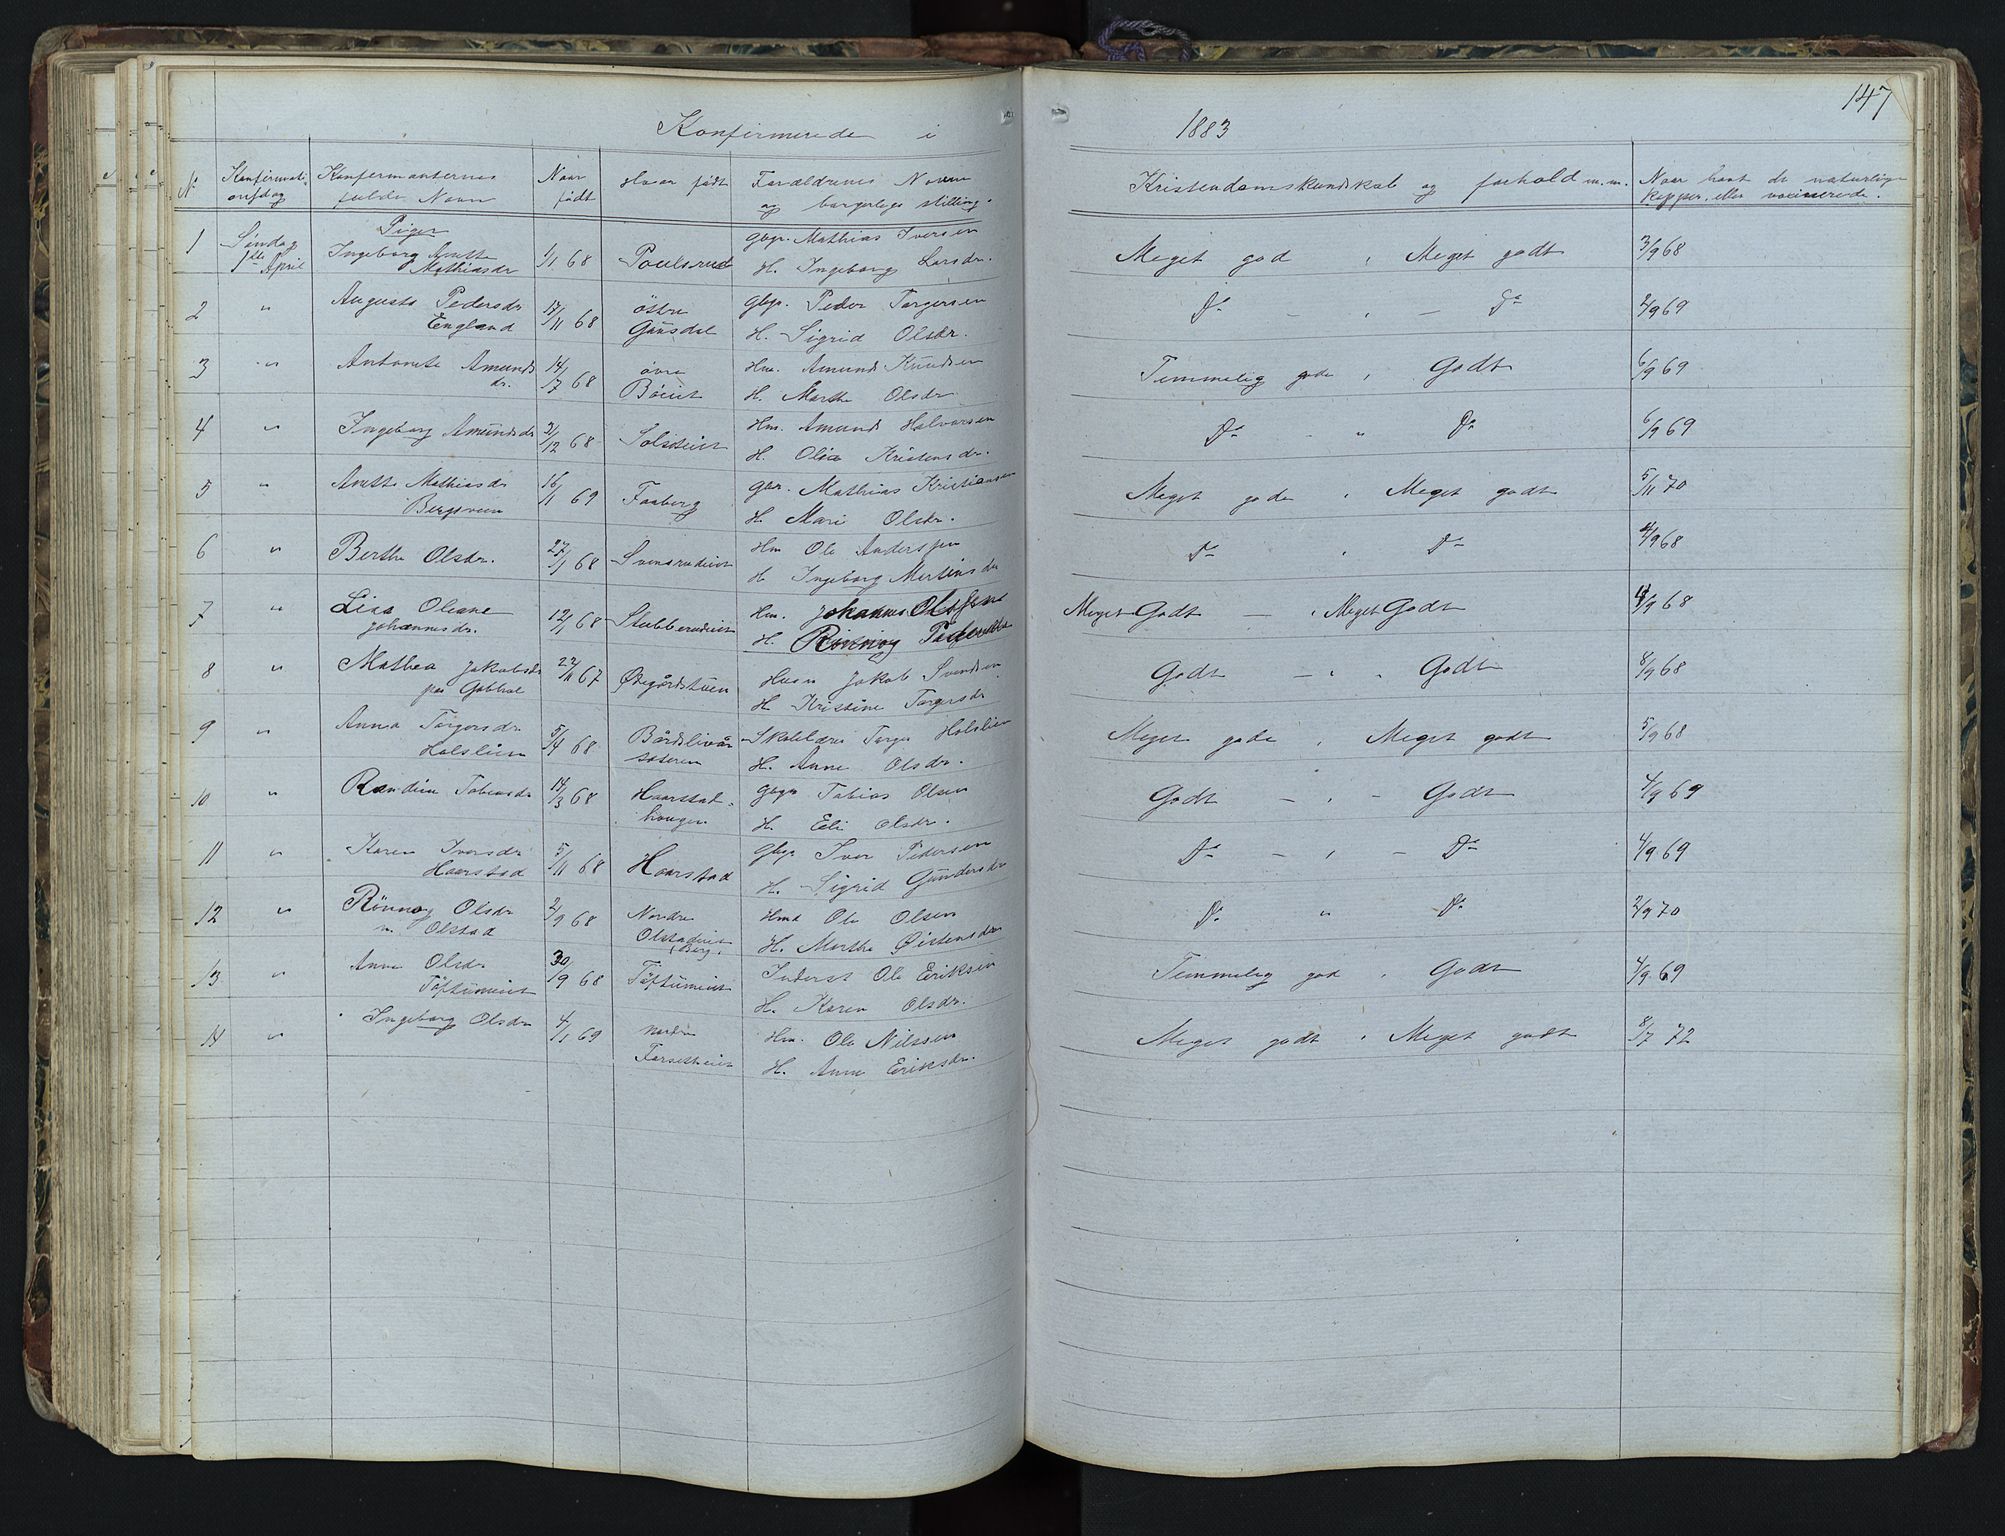 147
Konfirmerede i 1883
No
Konfirmati-
onsdag
Konfirmanternes
fulde Navn
Naar
født
Hvor født
Forældrenes Navn
og borgerlige stilling.
Kristendomskundskab og forhold m.m.
Naar havt de naturlige
kopper, eller vaccinerede.
Piger
1 Søndag
1ste April
Ingeborg Anette
Mathiasdr
1/1 68
Poulsrud
Gbgr. Mathias Iversen
H. Ingeborg Larsdr.
Meget god , Meget godt
3/9 68
2 "
Augusta Pedersdr
England
17/11 68
östre
Gausdal
Gbgr. Peder Torgersen
H. Sigrid Olsdr.
Do - , - Do
2/9 69
3 "
Antonette Amunds
dr.
14/7 68
övre
Böeiet
Hm. Amund Knudsen
H. Marthe Olsdr.
Temmelig gode , Godt
6/9 69
4 "
Ingeborg Amundsdr
21/12 68
Solsideiet
Hm. Amund Halvorsen
H. Olea Kristensdr.
Do - " Do
6/9 69
5 "
Anette Mathiasdr
Bergsveen
16/1 69
Faaberg
Gbr. Mathias Kristiansen
H. Mari Olsdr.
Meget gode , Meget godt
5/11 70
6 "
Berthe Olsdr.
27/1 68
Svensrudeiet
Hm Ole Anderssen
H Ingeborg Mortensdr
Do , Do
4/9 68
7 "
Lisa Oleane
Johannesdr.
12/1 68
Stubberudeiet
Hm. Johannes Olssen
H. Rönnog Pedersdtr
Meget Godt - , Meget Godt
4/9 68
8 "
Mathea Jakobsdr
paa Gobbel
22/11 67
Ødegårdstuen
Husm Jakob Svendsen
H Kristine Torgersdr
Godt - , Godt
8/9 68
9 "
Anna Torgersdr
Holslien
5/4 68
Bårdslivår
sæteren
Skolelærer Torger Holslien
H. Anne Olsdr.
Meget gode , Meget godt
5/9 68
10 "
Randine Tobiasdr
14/3 68
Haarstad-
haugen
Gbgr Tobias Olsen
H. Eli Olsdr.
Godt - , - Godt
4/9 69
11 "
Karen Iversdr
Haarstad
5/11 68
Haarstad
Gbgr Iver Pedersen
H. Sigrid Gundersdr
Do - , - Do
4/9 69
12 "
Rönnog Olsdr
n. Olstad
2/9 68
Nordre
Olstadeiet
(Berg.
Hmd Ole Olsen
H. Marthe Øistensdr
Do " Do
2/9 70
13 "
Anne Olsdr
Töftumeiet
30/9 68
Töftumeiet
Inderst Ole Eriksen
H. Karen Olsdr.
Temmelig god , Godt
4/9 69
14 "
Ingeborg Olsdr
4/1 69
nordre
Forsetheiet
Hm. Ole Nilssen
H. Anne Eriksdr.
Meget godt , Meget godt
8/7 72